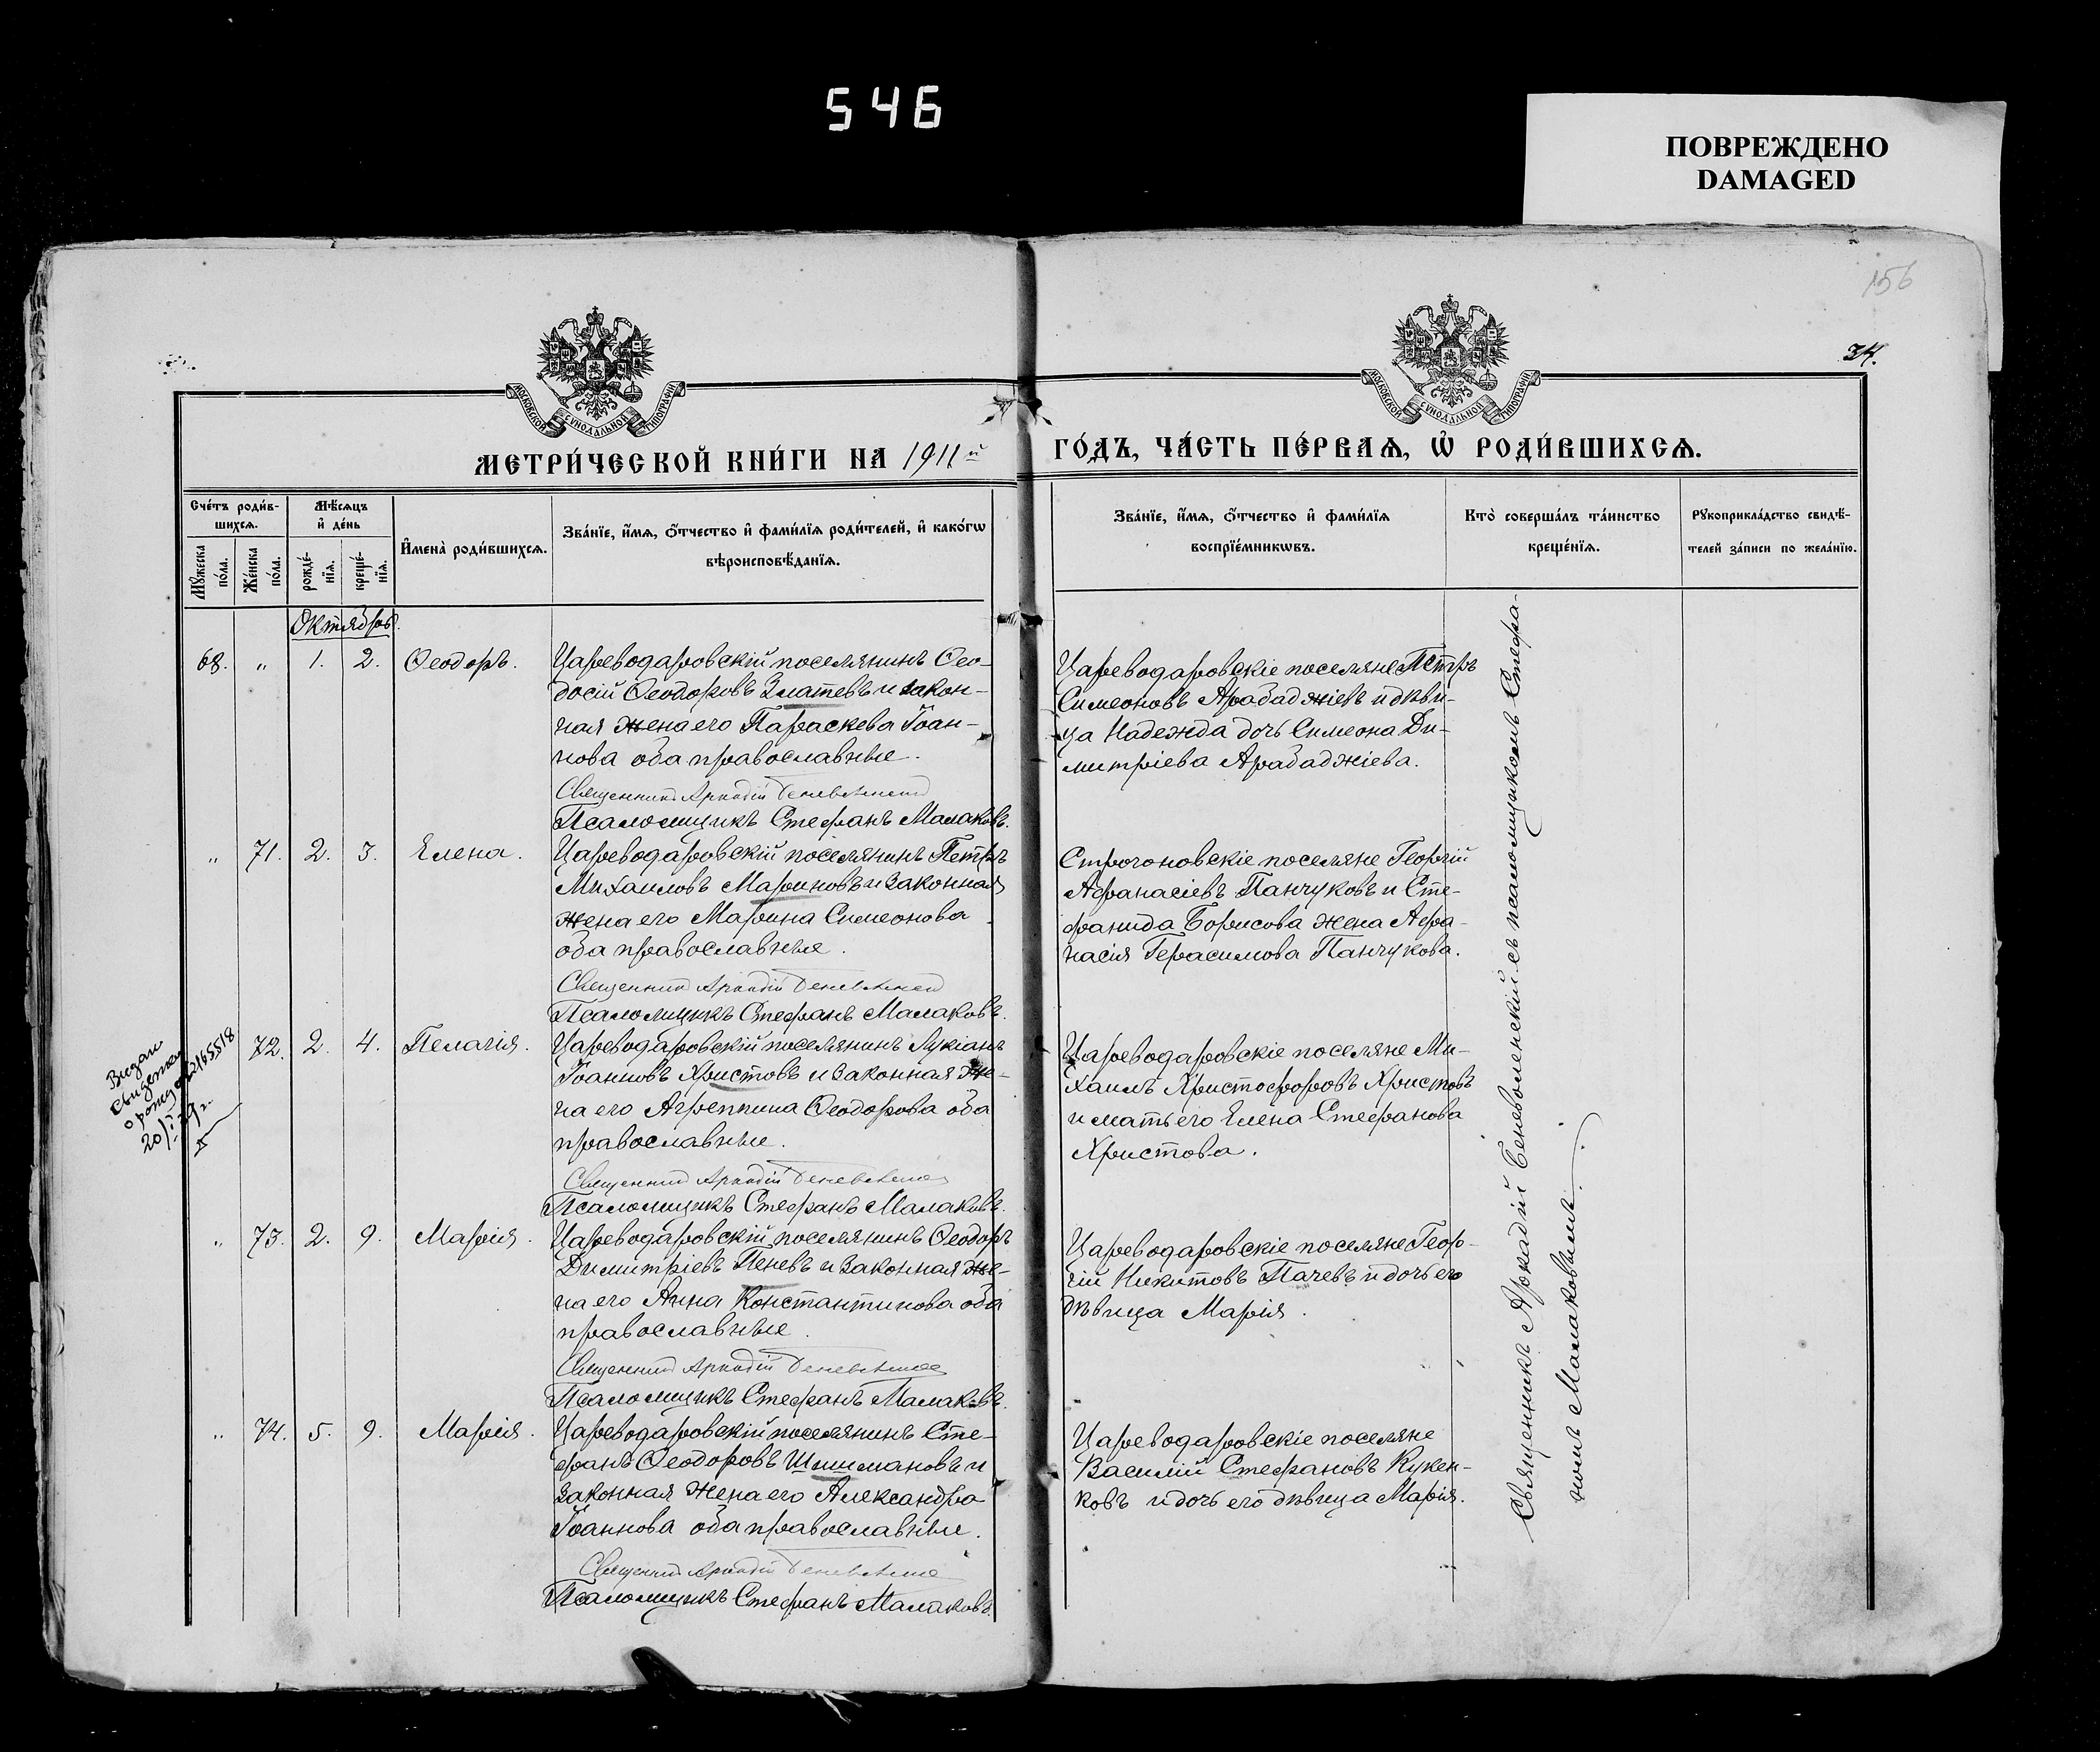 546
ПОВРЕЖДЕНО
DAMAGED
156
34.
МОСКОВСКОЙ СѴНОДАЛЬНОЙ ТИПОГРАФІИ
МОСКОВСКОЙ СѴНОДАЛЬНОЙ ТИПОГРАФІИ
МЕТРИ́ЧЕСКОЙ КНИ́ГИ НА 1911й
ГО́ДЪ, ЧА́СТЬ ПЕ́РВАѦ, Ѡ҆ РОДИ́ВШИХСѦ.
Сче́тъ роди́в-
шихсѧ.
Мѹ́жеска по́ла.
Же́нска по́ла.
Мѣ́сѧцъ
и҆ де́нь
рожде́-
нїѧ.
креще́-
нїѧ.
И҆мена̀ роди́вшихсѧ.
Зва́нїе, и҆́мѧ, ѻ҆́тчество и҆ фами́лїѧ роди́телей, и҆ како́гѡ
вѣроисповѣ́данїѧ.
Зва́нїе, и҆́мѧ, ѻ҆́тчество и҆ фами́лїѧ
воспрїе́мникѡвъ.
Кто̀ соверша́лъ та́инство
креще́нїѧ.
Рꙋкоприкла́дство свидѣ́-
телей за́писи по жела́нїю.
Октябрь.
68. „ 1. 2. Ѳеодоръ.
Цареводаровскій поселянинъ Ѳео-
досій Ѳеодоровъ Златевъ и закон-
ная жена его Параскева Іоан-
нова оба православные.
Священникъ Аркадій Беневоленскій
Псаломщикъ Стефанъ Малаковъ.
Цареводаровскіе поселяне Петръ
Симеоновъ Арабаджіевъ и дѣви-
ца Надежда дочь Симеона Ди-
митріева Арабаджіева.
„ 71. 2. 3. Елена.
Цареводаровскій поселянинъ Петръ
Михаиловъ Мариновъ и законная
жена его Марина Симеонова
оба православные.
Священникъ Аркадій Беневоленскій
Псаломщикъ Стефанъ Малаковъ.
Строгоновскіе поселяне Георгій
Афанасіевъ Панчуковъ и Сте-
фанида Борисова жена Афа-
насія Герасимова Панчукова.
Видан
о рожд
20/I 39 г.
„ 72. 2. 4. Пелагія.
Цареводаровскій поселянинъ Лукіанъ
Іоанновъ Христовъ и законная же-
на его Агреппина Ѳеодорова оба
православные.
Священникъ Аркадій Беневоленскій
Псаломщикъ Стефанъ Малаковъ.
Цареводаровскіе поселяне Ми-
хаилъ Христофоровъ Христовъ
и мать его Елена Стефанова
Христова.
„ 73. 2. 9. Марія.
Цареводаровскій поселянинъ Ѳеодоръ
Димитріевъ Пеневъ и законная же-
на его Анна Константинова оба
православные.
Священникъ Аркадій Беневоленскій
Псаломщикъ Стефанъ Малаковъ.
Цареводаровскіе поселяне Геор-
гій Никитовъ Пачевъ и дочь его
дѣвица Марія.
„ 74. 5. 9. Марія.
Цареводаровскій поселянинъ Сте-
фанъ Ѳеодоровъ Шишмановъ и
законная жена его Александра
Іоаннова оба православные.
Священникъ Аркадій Беневоленскій
Псаломщикъ Стефанъ Малаковъ.
Цареводаровскіе поселяне
Василій Стефановъ Кукен-
ковъ и дочь его дѣвица Марія.
Священникъ Аркадій Беневоленскій съ псаломщикомъ Стефа-
номъ Малаковымъ.